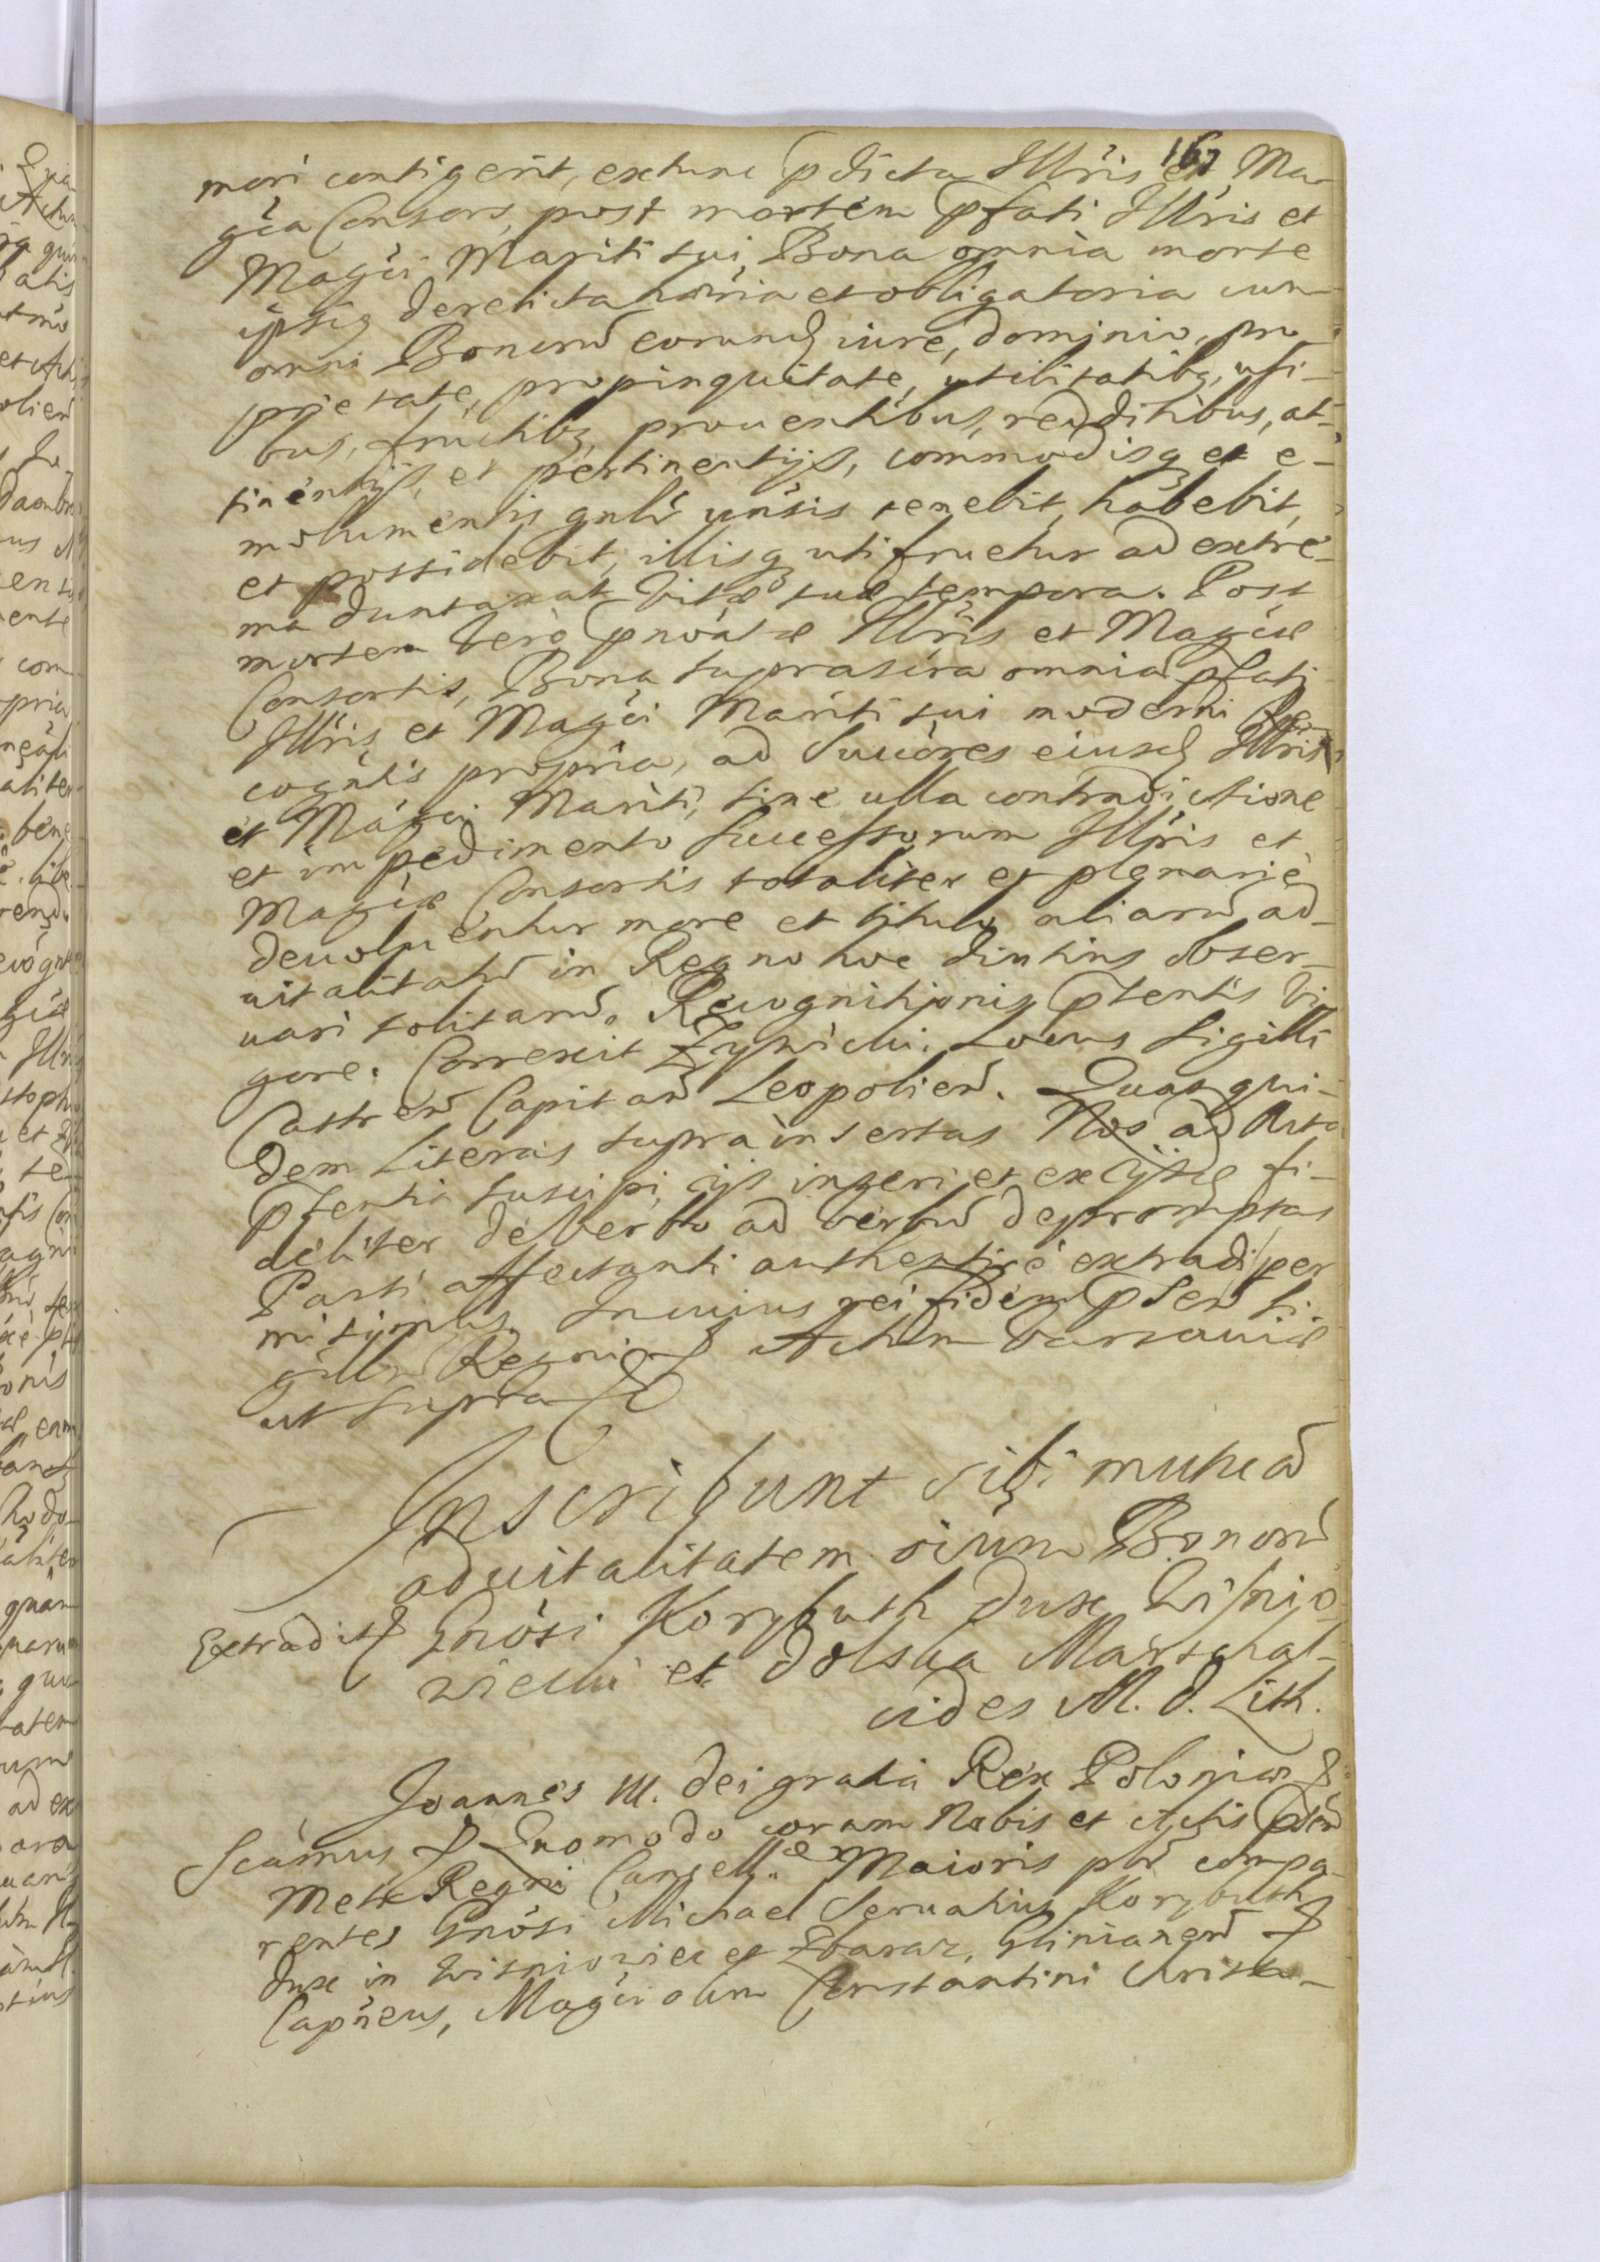 167
mori contigerit, extunc pdicta Illris et Ma-
gca Consors, post mortem pfati Illris et
Magci Mariti sui, Bona omnia morte
ipsiq derelicta hæria et obligatoria cum
omni Bonorū eorund iure, dominio, pro
prietate, propinquitate, utilitatibq, usi-
bus, fructibq, prouentibus, redditibus, at-
tinentijs, et pertinentijs, commodisq et e-
molumentis gnlr uńsis tenebit, habebit,
et possidebit, illisq uti fruetur ad extre-
ma duntaxat Vitæ suæ tempora. Post
mortem Verò pnóatæ Illris et Magcæ
Consortis, Bona suprascra omnia pfati
Illris et Magci Mariti sui moderni Re-
cogntis propria, ad Succóres eiusd Illris
et Magci Mariti, sine ulla contradictione
et impedimento Successorum Illris et
Magcæ Consortis totaliter et plenariè
deuoluentur more et titulo aliarū ad-
uitalitatū in Regno hoc diutius obser-
uari solitarū. Recognitionis pſentis Vi-
gore. Correxit Zywicki. Locus Sigilli
Castren Capitan Leopolien. Quas qui-
dem Literas supra insertas Nos ad Acta
pſentia suscipi, ijs inseri et ex ijsd fi-
deliter de Verbo ad verbū depromptas
Parti affectanti authentice extradi per
misimus. In cuius rei fidem pſen Si-
gillū Regni Actum Varsauiæ
ut supra
Inscribunt sibi mutuā
aduitalitatem oium Bonorū
Extradit Gnósi Korybuth Dux Wisnio-
wiecki et Dolska Marschal-
cides M. D. Lith.
Joannes III. Dei gratia Rex Poloniæ
Scámus Quomodo coram Nobis et Actis pſen
Metr Regni Cancell. Maioris pnr compa-
rentes Gnósi Michael Seruatius Korybuth
Dux in Wisniowiec et Zbaraz, Glinianen
Capneus, Magci olim Constantini Christo-